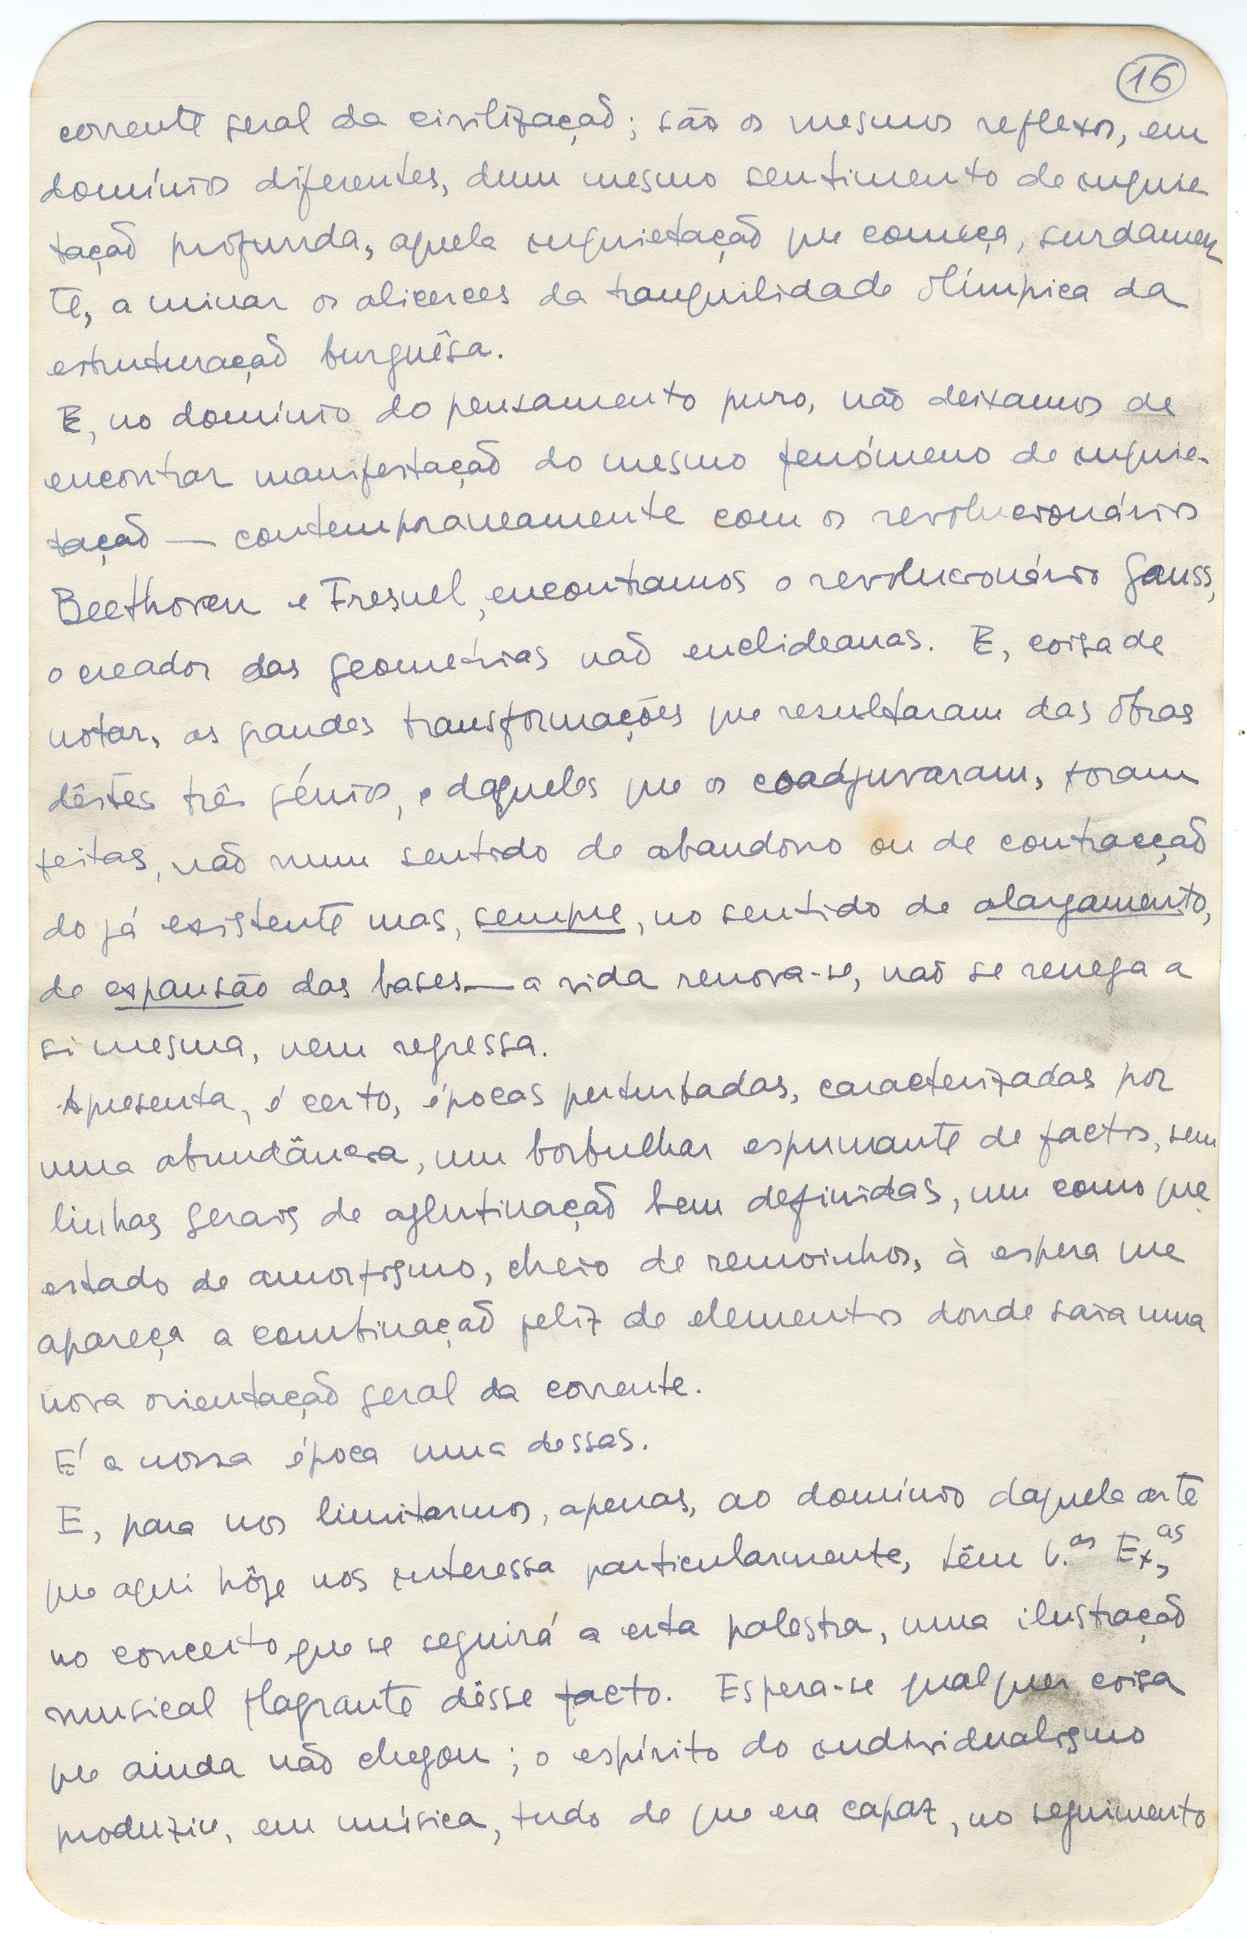 16
corrente geral da civilização; são os mesmos reflexos, em
domínios diferentes, dum mesmo sentimento de inquie
tação profunda, aquela inquietação que começa, surdamen
te, a minar os alicerces da tranquilidade olímpica da
estruturação burguêsa.
E, no domínio do pensamento puro, não deixamos de
encontrar manifestação do mesmo fenómeno de inquie-
tação — contemporaneamente com os revolucionários
Beethoven e Fresnel, encontramos o revolucionário Gauss,
o creador das geometrias não euclideanas. E, coisa de
notar, as grandes transformações que resultaram das obras
dêstes três génios, e daqueles que os coadjuvaram, foram
feitas, não num sentido de abandono ou de contracção
do já existente mas, sempre, no sentido de alargamento,
de expansão das bases — a vida renova-se, não se renega a
si mesma, nem regressa.
Apresenta, é certo, épocas perturbadas, caracterizadas por
uma abundância, um borbulhar espumante de factos, sem
linhas gerais de aglutinação bem definidas, um como que
estado de amorfismo, cheio de remoinhos, à espera que
apareça a combinação feliz de elementos donde saia uma
nova orientação geral da corrente.
É a nossa época uma dessas.
E, para nos limitarmos, apenas, ao domínio daquela arte
que aqui hôje nos interessa particularmente, têm V.as Ex.as,
no concerto que se seguirá a esta palestra, uma ilustração
musical flagrante dêsse facto. Espera-se qualquer coisa
que ainda não chegou; o espírito do individualismo
produziu, em música, tudo de que era capaz, no seguimento